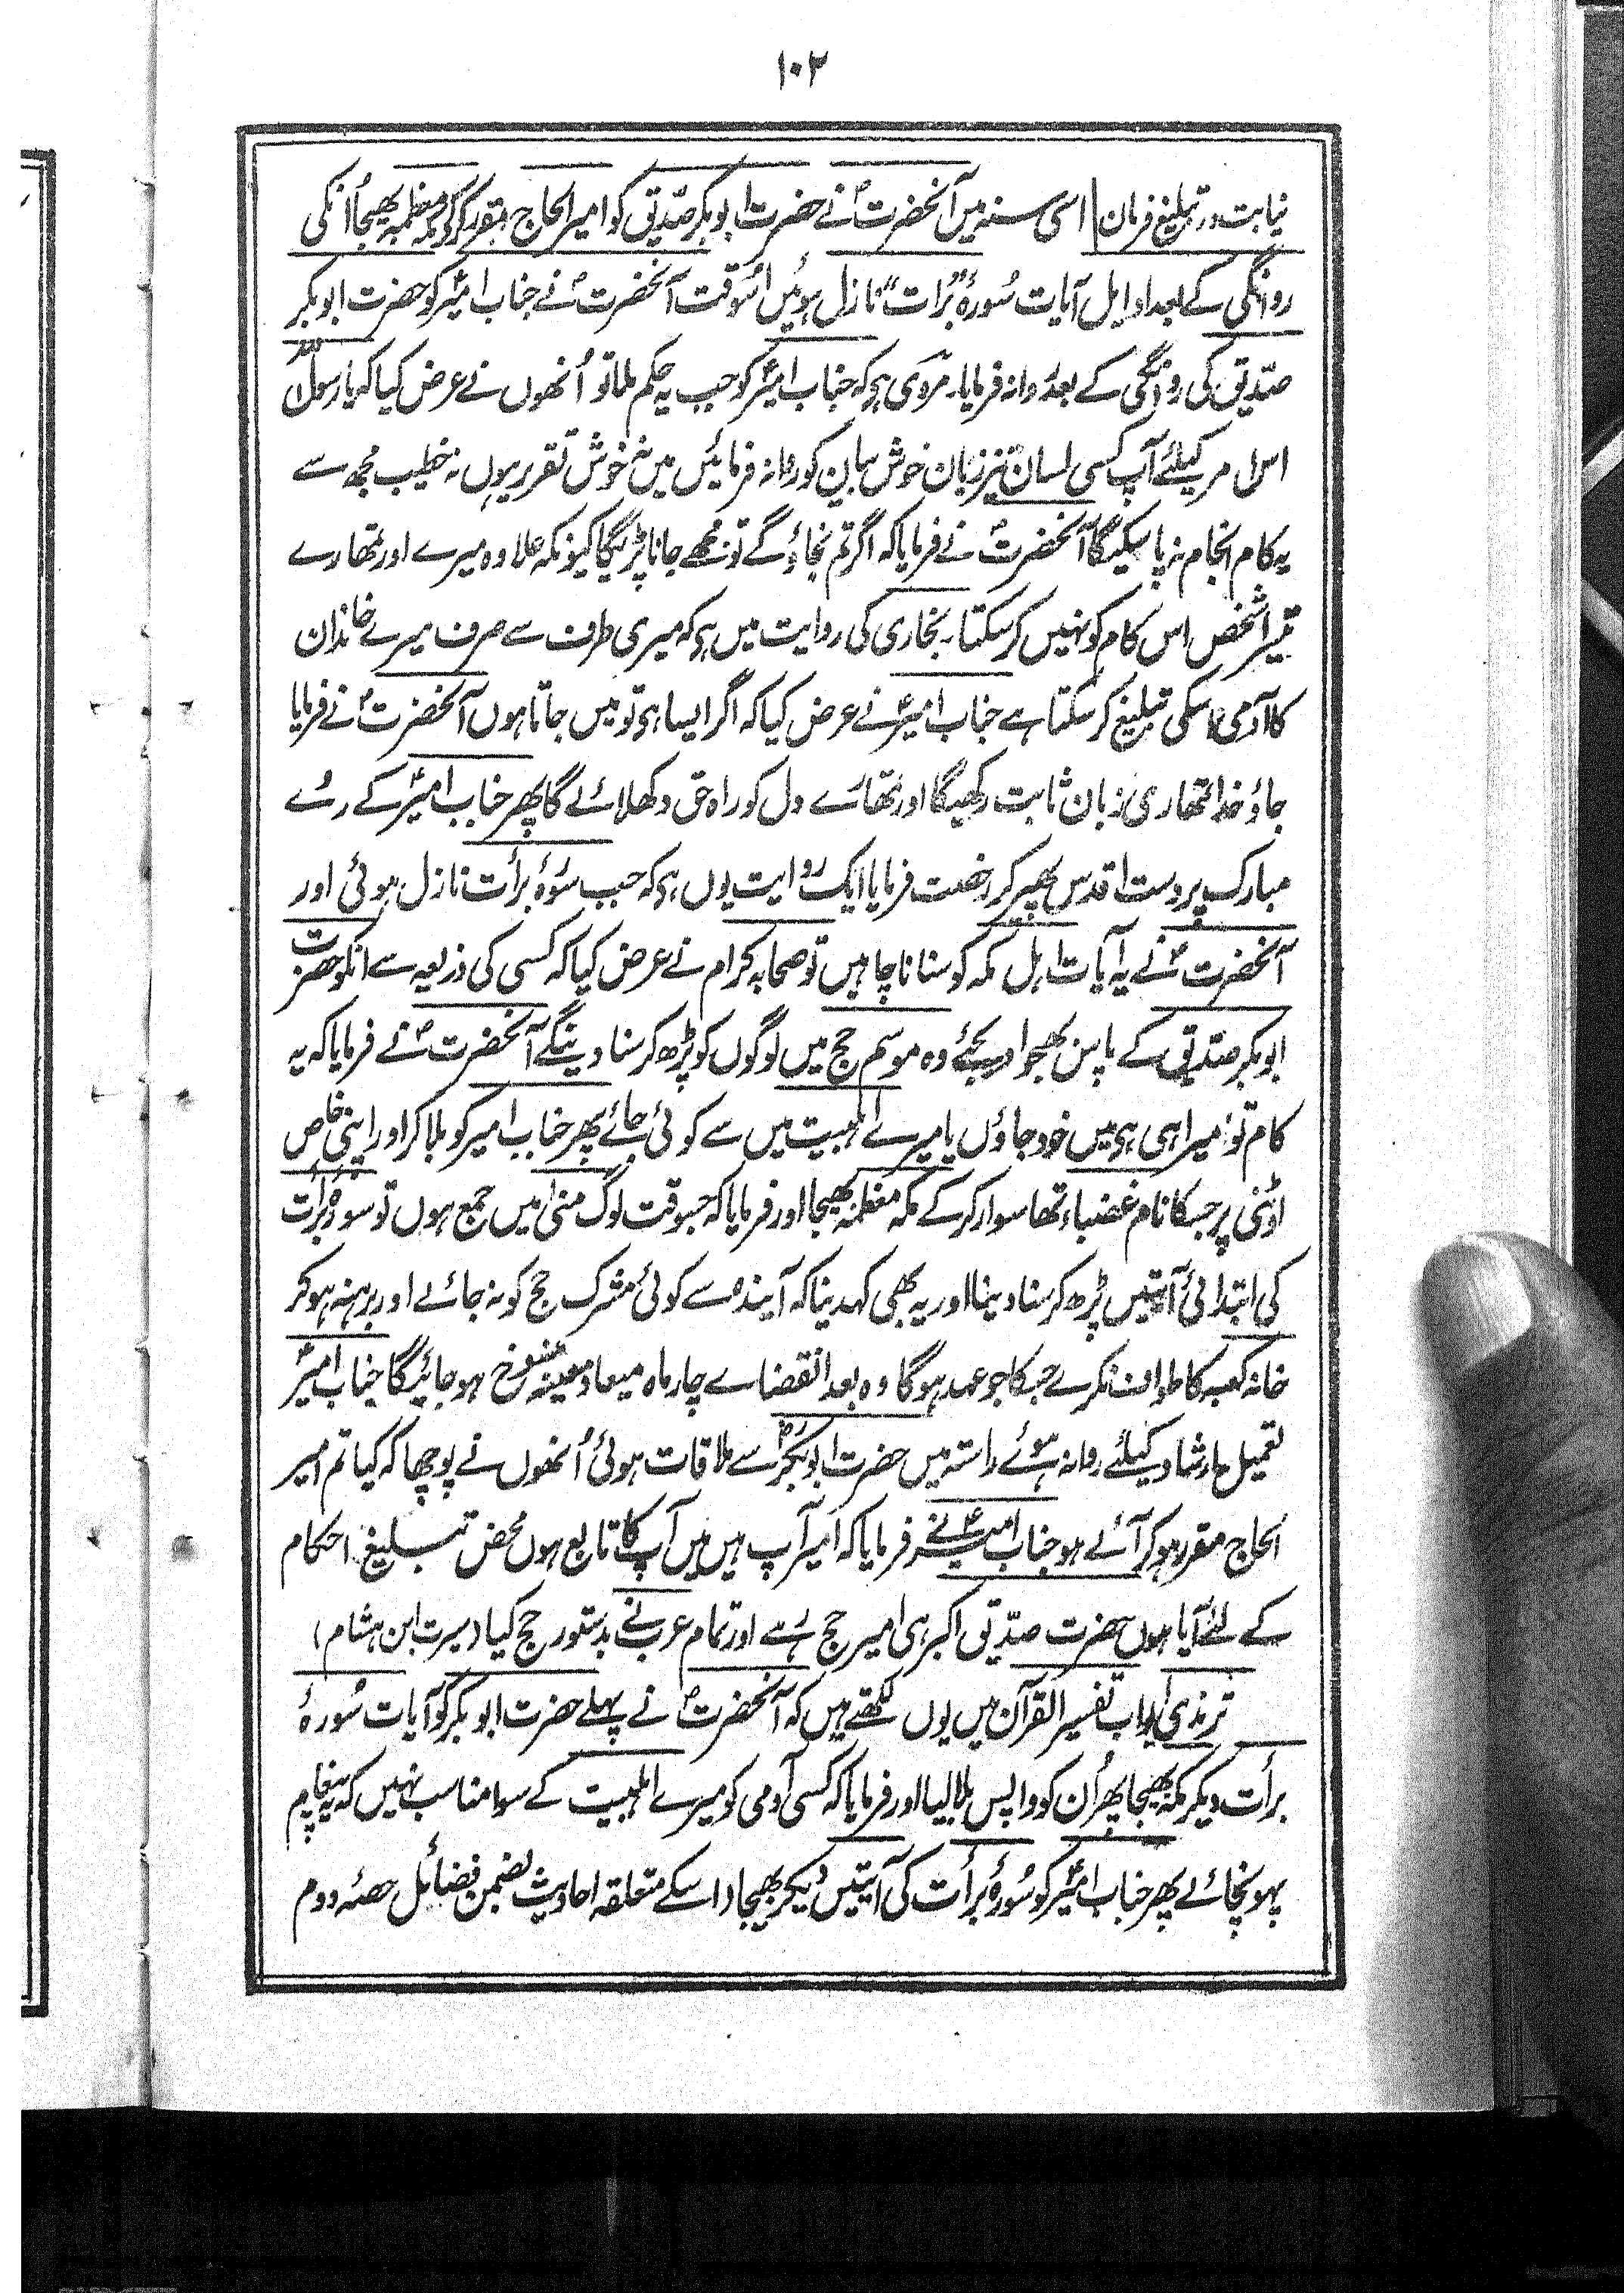 ۱۰۲
نیابت در تبلیغ فرمان | اسی سنہ میں آنحضرتؐ نے حضرت ابوبکر صدّیق کو امیر الحاج مقرر کرکے مکہ معظمہ بھیجا اُنکی
روانگی کے بعد اوایل آیات سُورۂ "بُرات" نازل ہوئیں اُسوقت آنحضرتؐ نے جناب امیرؑ کو حضرت ابوبکر
صدّیق کی روانگی کے بعد روانہ فرمایا۔ مروی ہی کہ جناب امیرؑ کو جب یہ حکم ملا تو اُنھوں نے عرض کیا کہ یا رسول اللہ
اس امر کیلئے آپ کسی لسان تیز زبان خوش بیان کو روانہ فرمائیں میں نہ خوش تقریر ہوں نہ خطیب مجھ سے
یہ کام انجام نہ پا سکیگا آنحضرتؐ نے فرمایا کہ اگر تم نجاؤ گے تو مجھے جانا پڑیگا کیونکہ علاوہ میرے اور تمھارے
تیسرا شخص اس کام کو نہیں کر سکتا۔ بخاری کی روایت میں ہی کہ میری طرف سے صرف میرے خاندان
کا آدمی اسکی تبلیغ کر سکتا ہے جناب امیرؑ نے عرض کیا کہ اگر ایسا ہی تو میں جاتا ہوں آنحضرتؐ نے فرمایا
جاؤ خدا تمھاری زبان ثابت رکھیگا اور تمھارے دل کو راہ حق دکھلائے گا پھر جناب امیرؑ کے رُے
مبارک پر دست اقدس پھیر کر رخصت فرمایا ایک روایت یوں ہی کہ جب سورۂ برأت نازل ہوئی اور
آنحضرتؐ نے یہ آیات اہل مکہ کو سنانا چاہیں تو صحابہ کرام نے عرض کیا کہ کسی کی ذریعہ سے انکو حضرت
ابوبکر صدّیق کے پاس بھجوا دیجئے وہ موسم حج میں لوگوں کو پڑھ کر سنا دینگے آنحضرتؐ نے فرمایا کہ یہ
کام تو میرا ہی ہی میں خود جاؤں یا میرے اہلبیت میں سے کوئی جائے پھر جناب امیر کو بلا کر اور اپنی خاص
اونٹنی پر جسکا نام غضباء تھا سوار کرکے مکہ معظمہ بھیجا اور فرمایا کہ جسوقت لوگ منیٰ میں جمع ہوں تو سورۂ برأت
کی ابتدائی آیتیں پڑھ کر سنا دینا اور یہ بھی کہدینا کہ آیندہ سے کوئی مشرک حج کو نہ جائے اور برہنہ ہو کر
خانہ کعبہ کا طواف نکرے جسکا جو عہد ہوگا وہ بعد انقضاے چار ماہ میعاد معینہ منسوخ ہو جائیگا جناب امیرؑ
تعمیل ارشاد کیلئے روانہ ہوئے راستہ میں حضرت ابوبکرؓ سے ملاقات ہوئی اُنھوں نے پوچھا کہ کیا تم امیر
الحاج مقرر ہو کر آئے ہو جناب امیرؑ نے فرمایا کہ امیر آپ ہیں میں آپ کا تابع ہوں محض تبلیغ احکام
کے لئے آیا ہوں حضرت صدّیق اکبر ہی امیر حج رہے اور تمام عرب نے بدستور حج کیا (سیرت ابن ہشام)
ترمذی ابواب تفسیر القرآن میں یوں لکھتے ہیں کہ آنحضرتؐ نے پہلے حضرت ابوبکر کو آیات سُورۂ
برأت دیکر مکہ بھیجا پھر اُن کو واپس بلا لیا اور فرمایا کہ کسی آدمی کو میرے اہلبیت کے سوا مناسب نہیں کہ یہ پیغام
پہونچائے پھر جناب امیرؑ کو سُورۂ برأت کی آیتیں دیکر بھیجا (اسکے متعلقہ احادیث بضمن فضائل حصّہ دوم